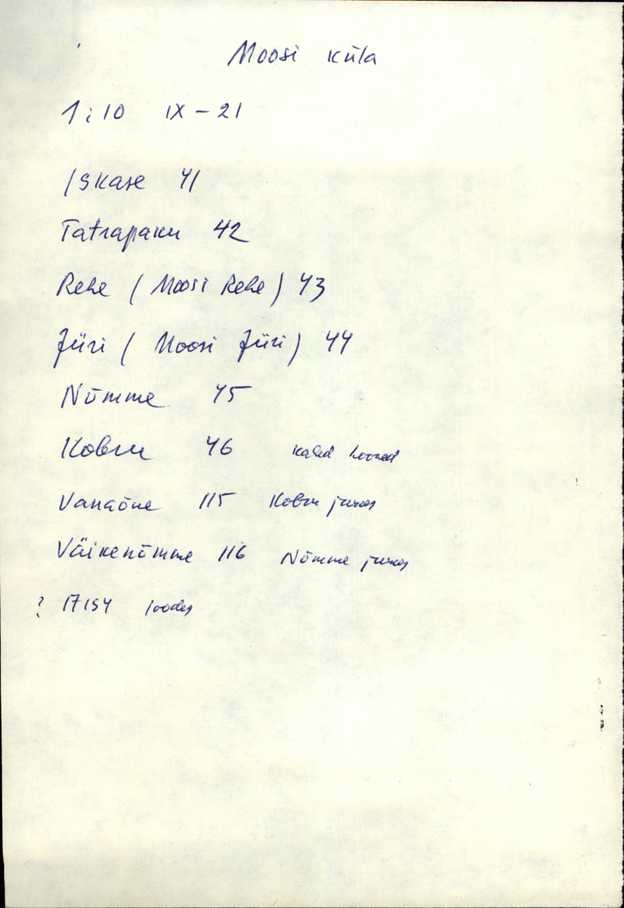 Moosi küla
1:10 IX-21
Iskase 41
Tatrapaku 42
Rehe (Moosi Rehe) 43
Jüri (Moosi Jüri) 44
Nõmme 45
Kobru 46 kaled hooned
Vanaõue 115 Kobru juures
Väikenõmme 116 Nõmme juures
? 17154 loodes